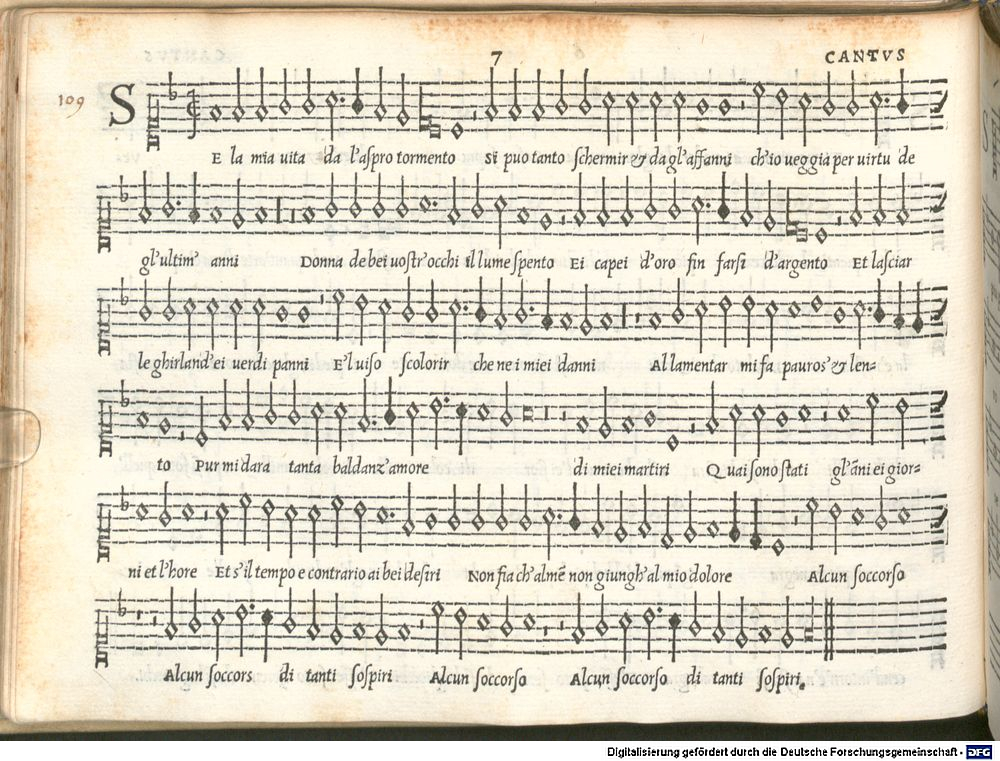 7
CANTVS
109
SE la mia uita da l'aspro tormento Si puo tanto schermir & da gl'affanni ch'io ueggia per uirtu de
gl'ultim' anni Donna de bei uostr'occhi il lume spento Ei capei d'oro fin farsi d'argento Et lasciar
le ghirland' ei uerdi panni E'l uiso scolorir che ne i miei danni Al lamentar mi fa pauros' & len=
to Pur mi dara tanta baldanz' amore di miei martiri Quai sono stati gl'āni ei gior=
ni et l'hore Et s'il tempo e contrario ai bei desiri Non fia ch'almē non giungh'al mio dolore Alcun soccorso
Alcun soccors di tanti sospiri Alcun soccorso Alcun soccorso di tanti sospiri.
Digitalisierung gefördert durch die Deutsche Forschungsgemeinschaft - DFG